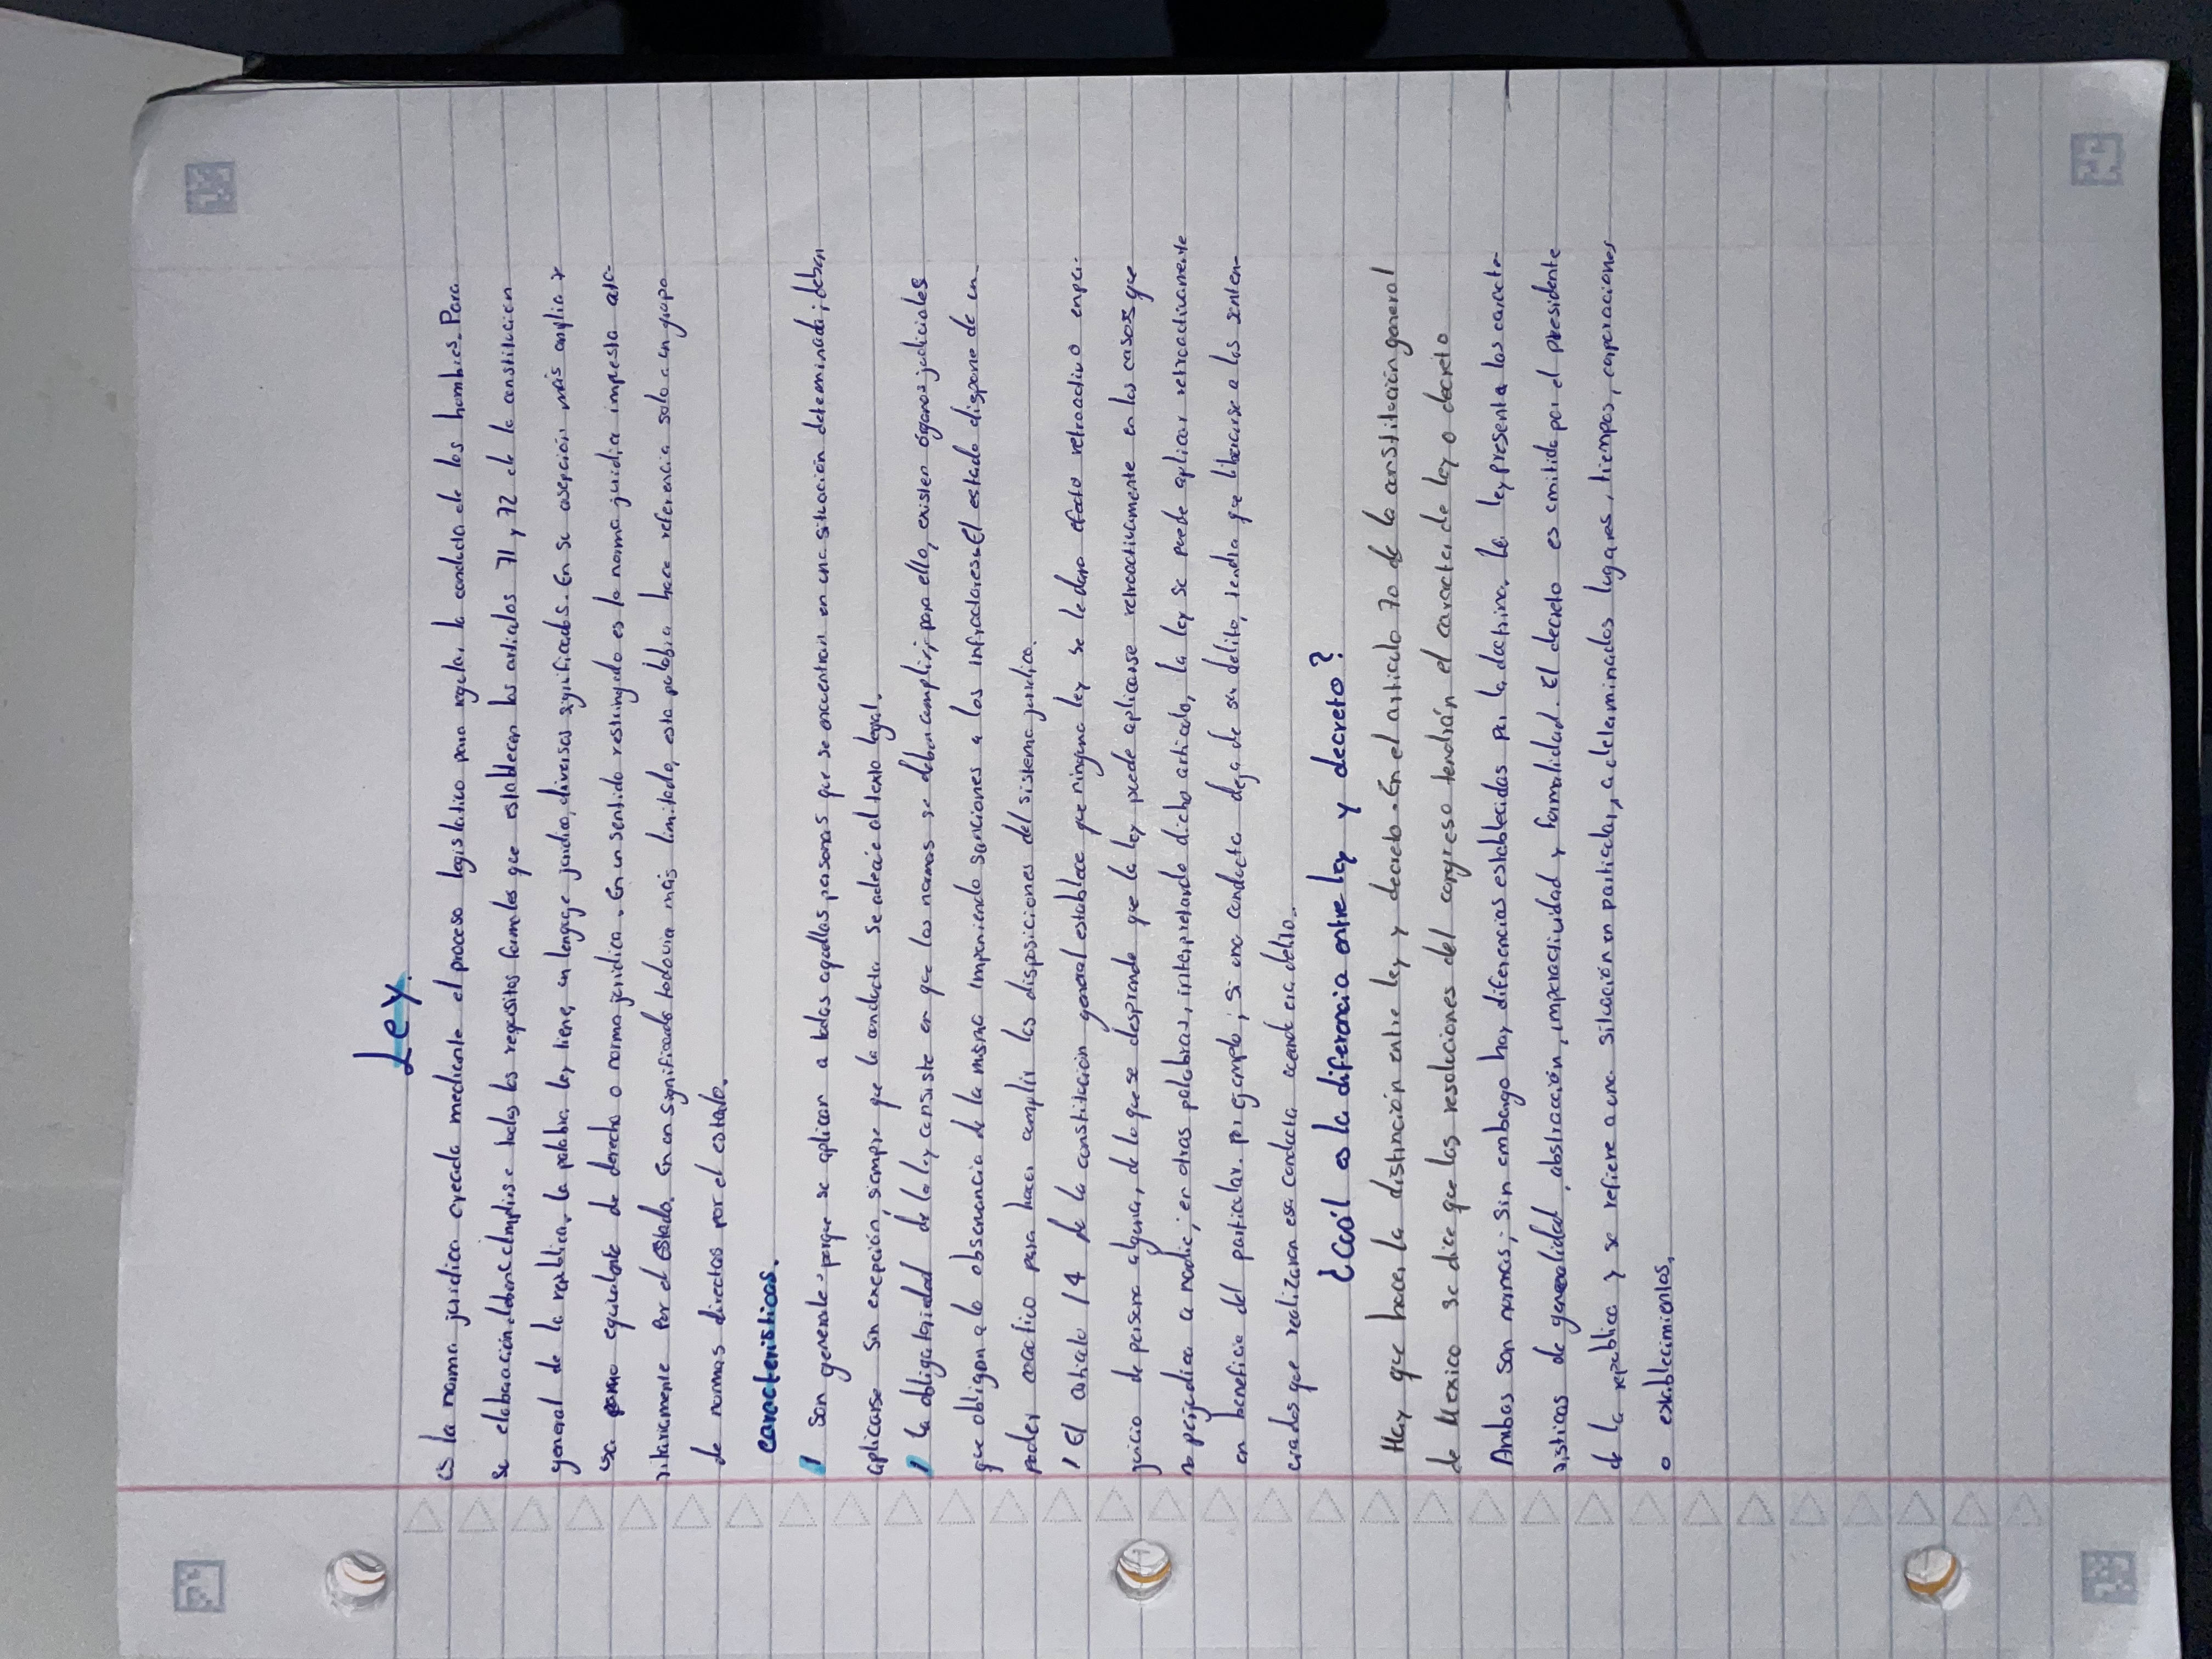 Ley.
Es la norma jurídica creada mediante el proceso legislativo para regular la conducta de los hombres. Para
su elaboración, deben cumplirse todos los requisitos formales que establecen los artículos 71 y 72 de la constitución
general de la república, la palabra ley tiene, en lenguaje jurídico, diversos significados. En su acepción más amplia y
usa como equivalente de derecho o norma jurídica. En un sentido restringido es la norma jurídica impuesta
por el estado. En un significado todavía más limitado, esta palabra hace referencia solo a un grupo
de normas directas por el estado.
características.
Son generales porque se aplican a todas aquellas personas que se encuentran en una situación determinada; deben
aplicarse sin excepción, siempre que la conducta se adecúe al texto legal.
La obligatoriedad de la ley consiste en que las normas se deben cumplir; para ello, existen órganos judiciales
que obligan a la observancia de la misma imponiendo sanciones a los infractores. El estado dispone de un
poder coactivo para hacer cumplir las disposiciones del sistema jurídico.
El artículo 14 de la constitución general establece que ninguna ley se le dará efecto retroactivo en per-
juicio de persona alguna, de lo que se desprende que la ley puede aplicarse retroactivamente en los casos que
no perjudica a nadie; en otras palabras, interpretando dicho artículo, la ley se puede aplicar retroactivamente
en beneficio del particular. Por ejemplo; si una conducta deja de ser delito, tendra que liberarse a los senten-
ciados que realizaron esa conducta cuando era delito.
¿Cuál es la diferencia entre ley y decreto?
Hay que hacer la distinción entre ley y decreto. En el artículo 70 de la constitución general
de Mexico se dice que las resoluciones del congreso tendrán el caracter de ley o decreto
Ambas son normas; sin embargo hay diferencias establecidas por la doctrina. La ley presenta las caracte-
rísticas de generalidad, abstracción, imperactividad y formalidad. El decreto es emitido por el presidente
de la republica y se refiere a una situación en particular, a determinados lugares, tiempos, corporaciones
o establecimientos.